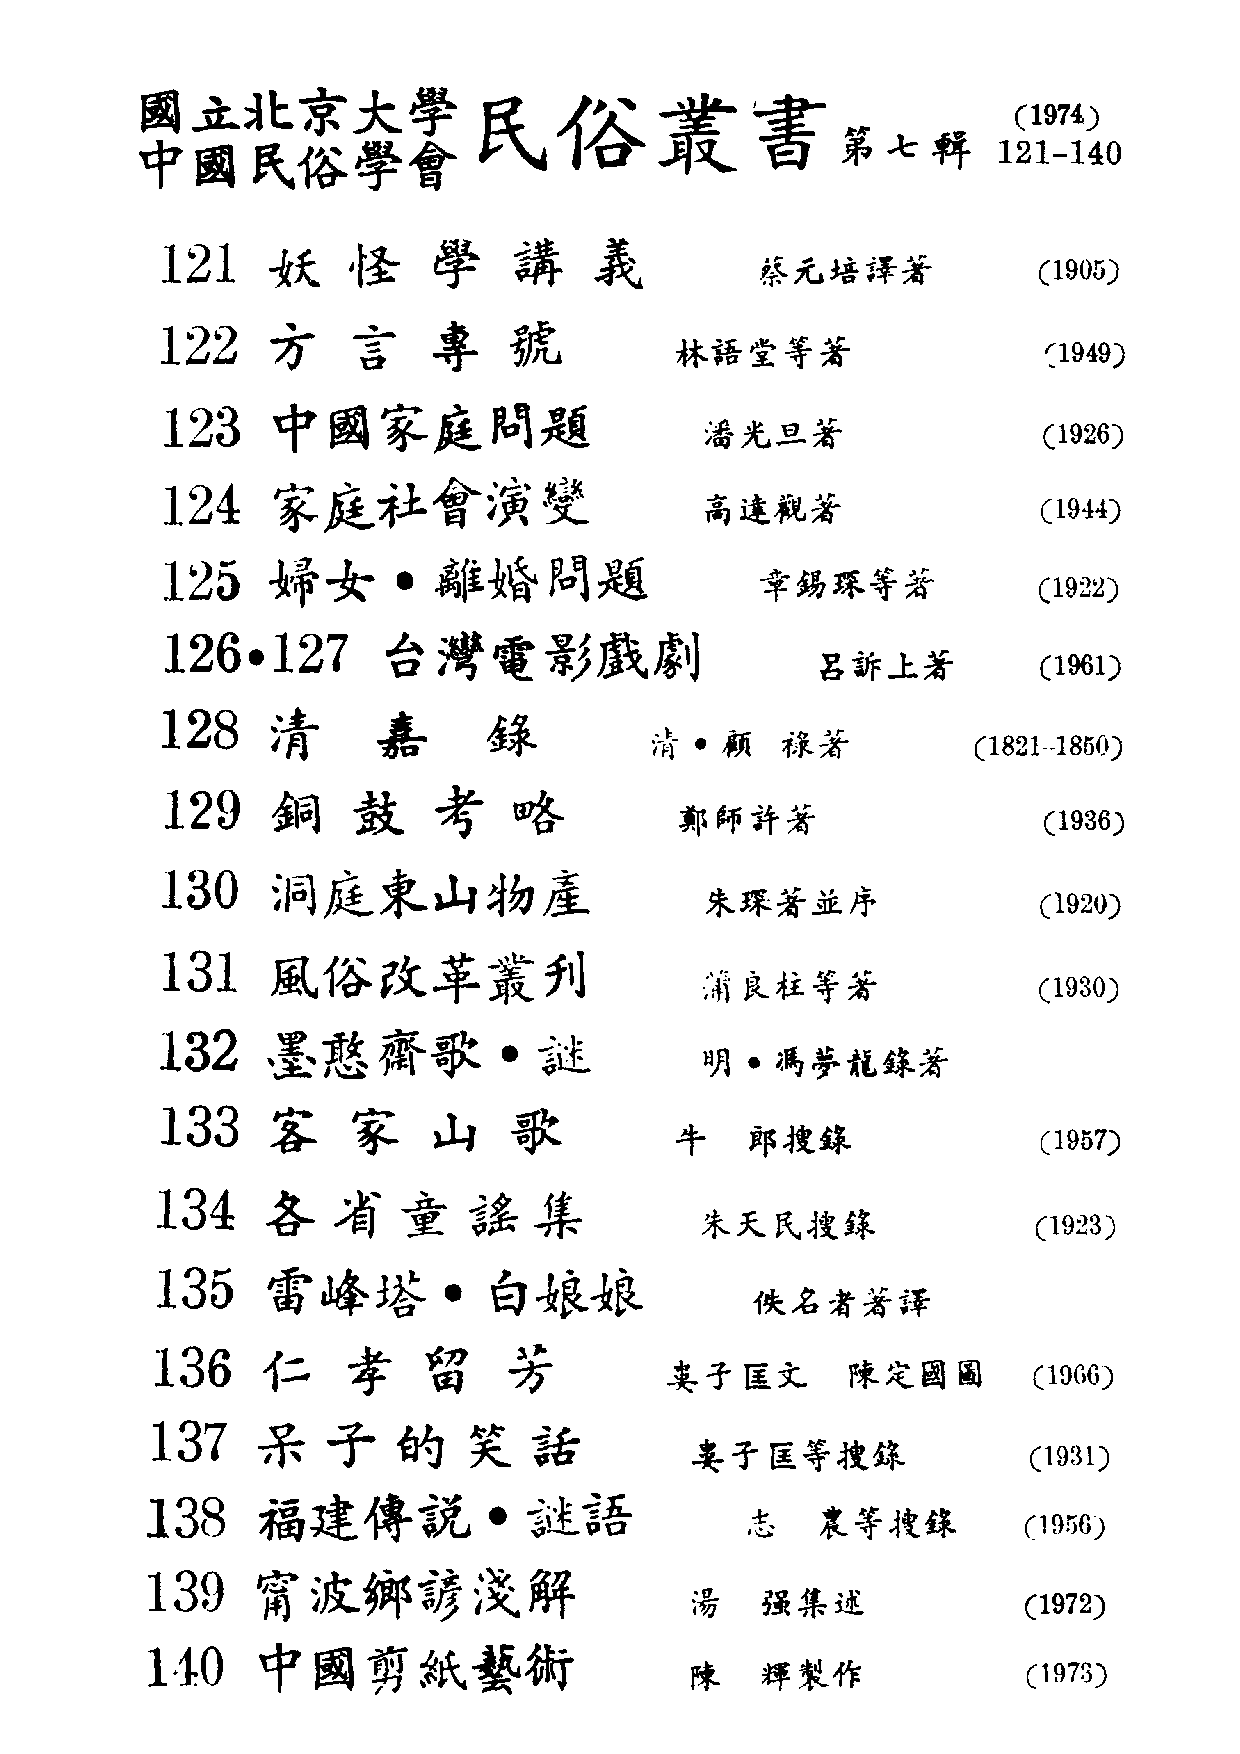 國立北京大學 民俗叢書 (1974)
中國民俗學會 第七輯 121-140
121 妖怪學講義 蔡元培譯著 (1905)
122 方言專號 林語堂等著 (1949)
123 中國家庭問題 潘光旦著 (1926)
124 家庭社會演變 高達觀著 (1944)
125 婦女•離婚問題 章錫琛等著 (1922)
126•127 台灣電影戲劇 呂訴上著 (1961)
128 清嘉錄 清•顧 祿著 (1821-1850)
129 銅鼓考略 鄭師許著 (1936)
130 洞庭東山物產 朱琛著並序 (1920)
131 風俗改革叢刋 蒲良柱等著 (1930)
132 墨憨齋歌•謎 明•馮夢龍錄著
133 客家山歌 牛 郎搜錄 (1957)
134 各省童謠集 朱天民搜錄 (1923)
135 雷峰塔•白娘娘 佚名者著譯
136 仁孝留芳 婁子匡文 陳定國圖 (1966)
137 呆子的笑話 婁子匡等搜錄 (1931)
138 福建傳説•謎語 志 農等搜錄 (1956)
139 甯波鄉諺淺解 湯 强集述 (1972)
140 中國剪紙藝術 陳 輝製作 (1973)